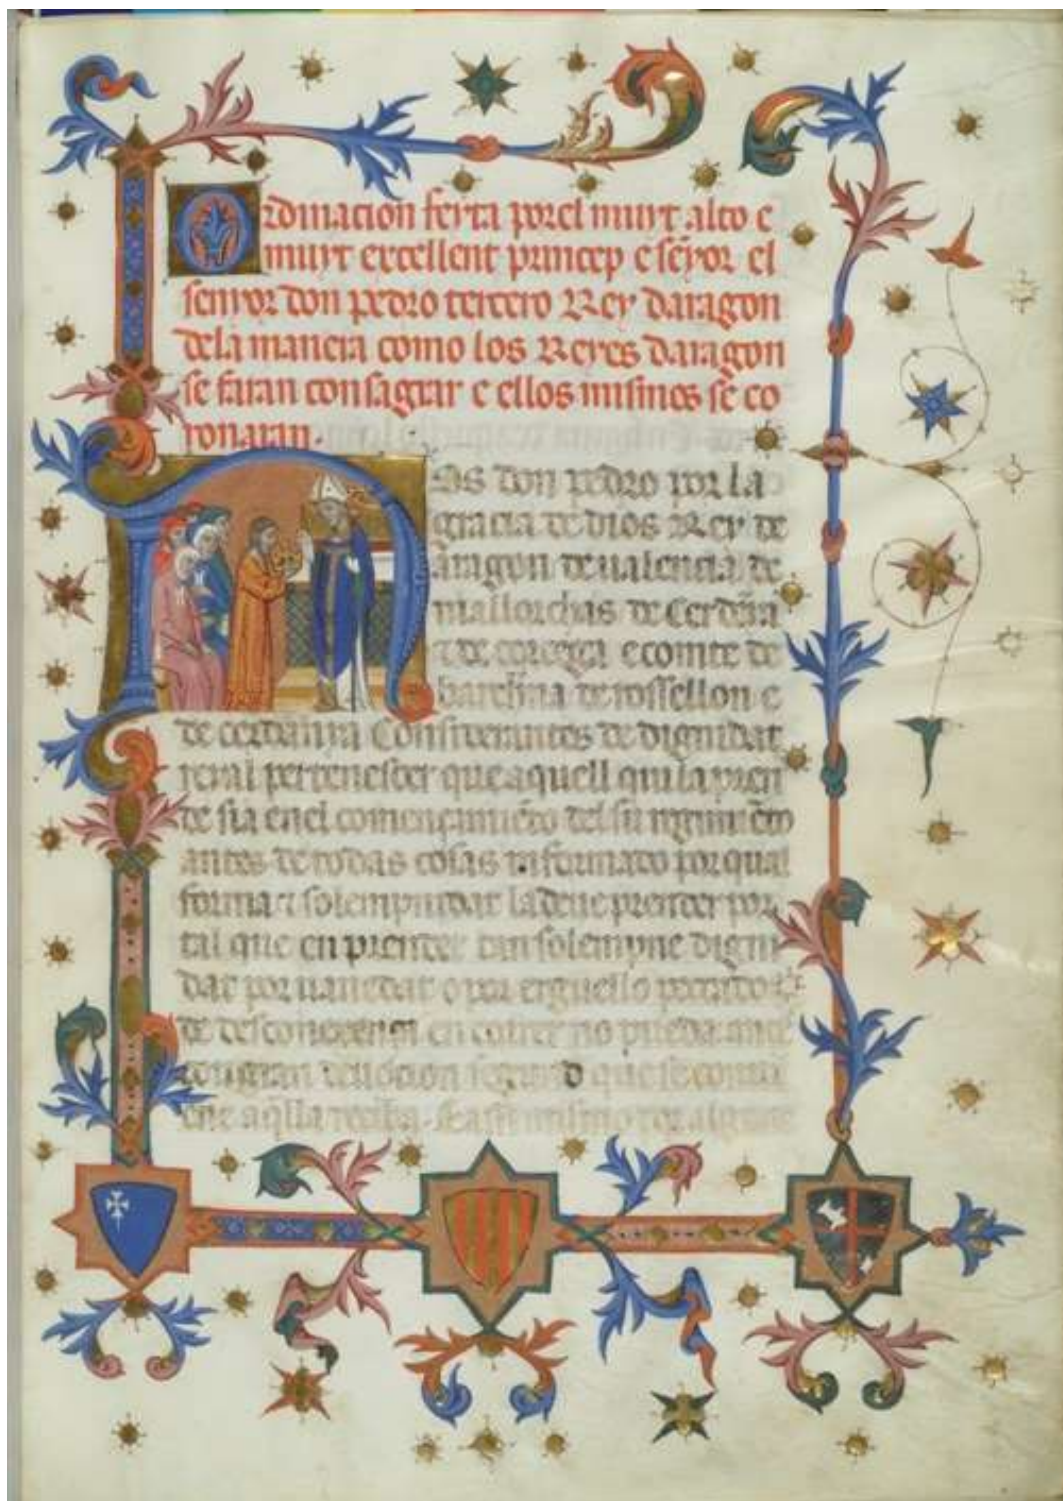 Ordinacion feyta por el muyt alto e
muyt excellent princep e seyor el
senyor don pedro tercero Rey daragon
dela manera como los Reyes daragon
se faran consagrar e ellos mismos se co
ronaran.
Nos don pedro por la
gracia de dios Rey de
aragon de valencia de
mallorchas de Cerdena
e de corcega e comte de
barchna de rossellon e
de cerdanya Considerantes de dignidat
reyal pertenescer que aquell qui la pren
de sia en el començamiento del su regimiento
antes de todas cosas informado por qual
forma e solempnidat la deue prender por
tal que en prender tan solempne digni
dat por vanedat o por erguello
de en no pueda ante
con gran deuocion segund que se conui
ene aqlla reciba. E assi mismo por alguna